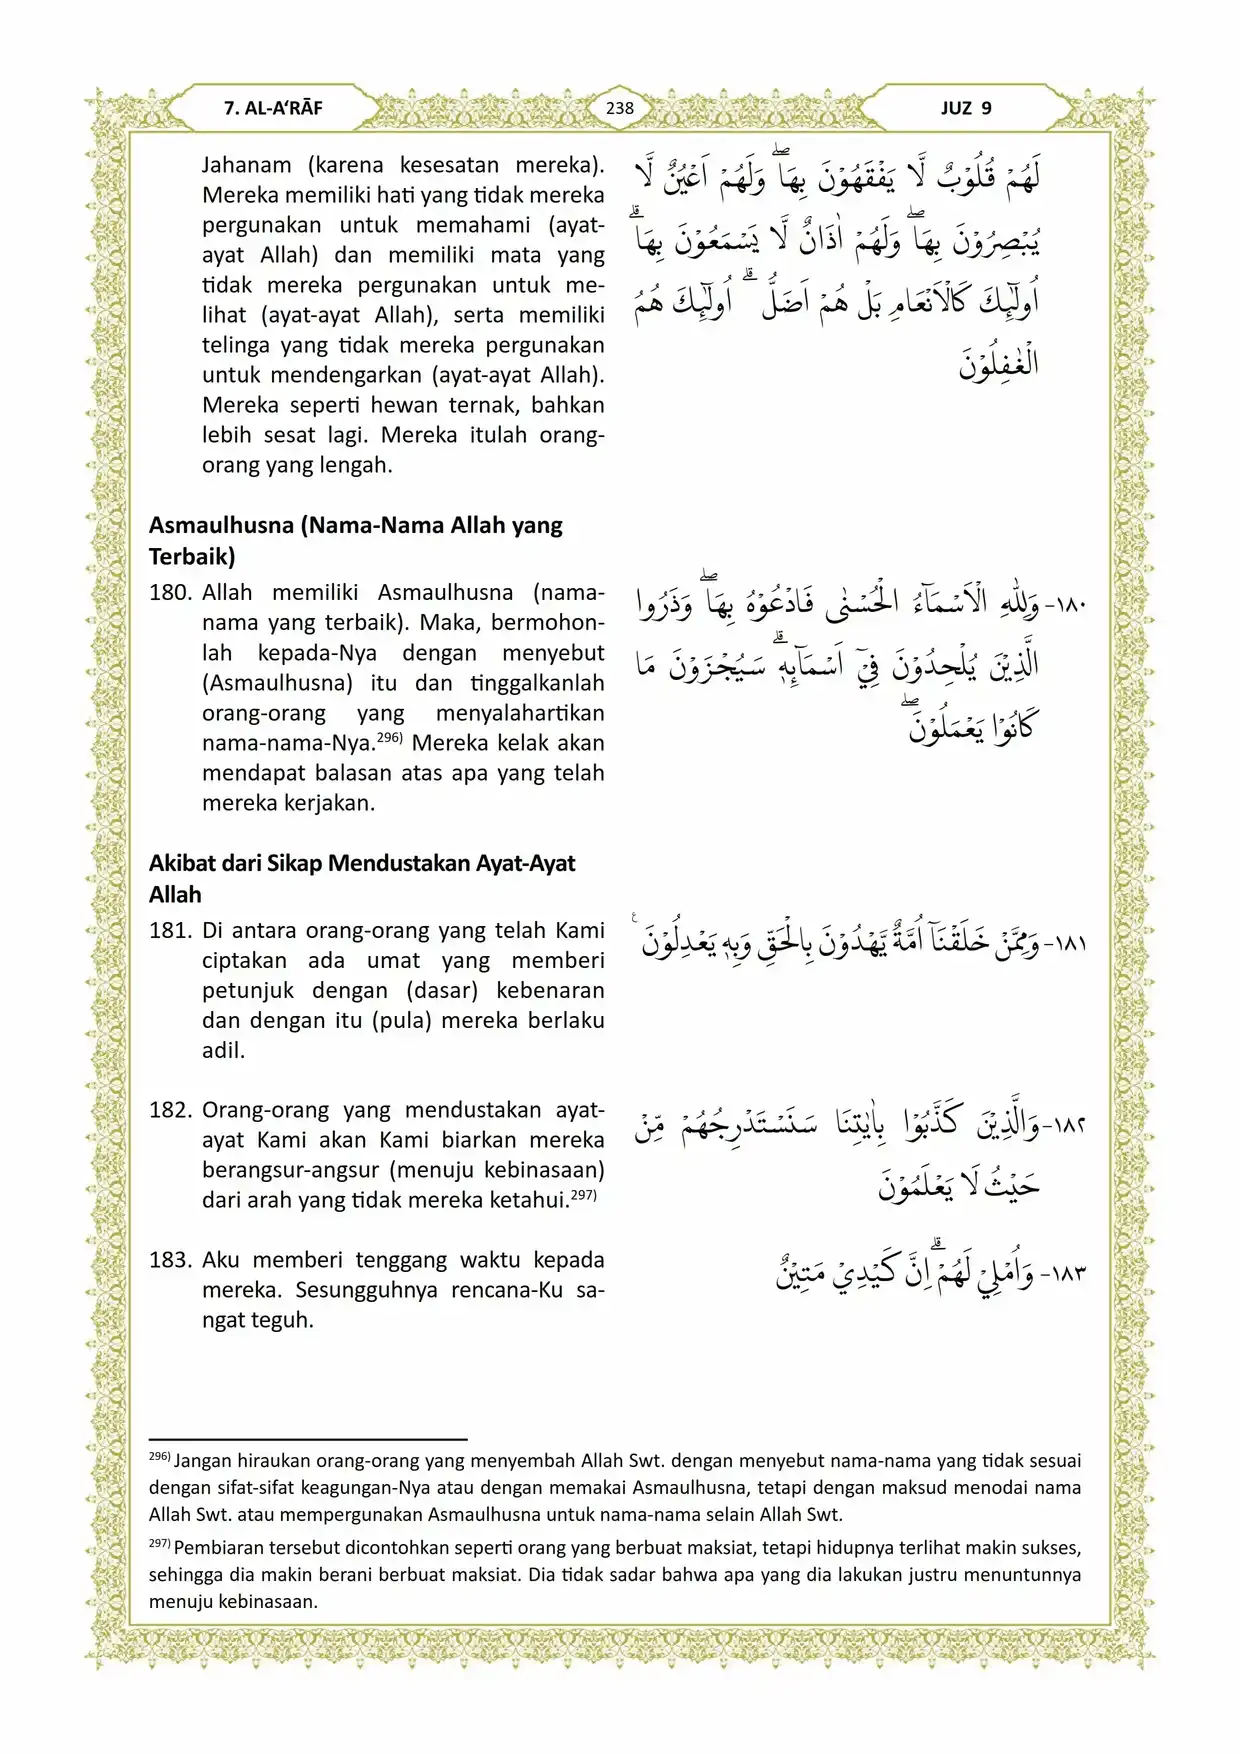 7. AL-A‘RĀF
238
JUZ 9
Jahanam (karena kesesatan mereka).
Mereka memiliki hati yang tidak mereka
pergunakan untuk memahami (ayat-
ayat Allah) dan memiliki mata yang
tidak mereka pergunakan untuk me-
lihat (ayat-ayat Allah), serta memiliki
telinga yang tidak mereka pergunakan
untuk mendengarkan (ayat-ayat Allah).
Mereka seperti hewan ternak, bahkan
lebih sesat lagi. Mereka itulah orang-
orang yang lengah.
لَهُمْ قُلُوْبٌ لَّا يَفْقَهُوْنَ بِهَاۖ وَلَهُمْ اَعْيُنٌ لَّا
يُبْصِرُوْنَ بِهَاۖ وَلَهُمْ اٰذَانٌ لَّا يَسْمَعُوْنَ بِهَاۗ
اُولٰۤىِٕكَ كَالْاَنْعَامِ بَلْ هُمْ اَضَلُّ ۗ اُولٰۤىِٕكَ هُمُ
الْغٰفِلُوْنَ
Asmaulhusna (Nama-Nama Allah yang
Terbaik)
180. Allah memiliki Asmaulhusna (nama-
nama yang terbaik). Maka, bermohon-
lah kepada-Nya dengan menyebut
(Asmaulhusna) itu dan tinggalkanlah
orang-orang yang menyalahartikan
nama-nama-Nya.296) Mereka kelak akan
mendapat balasan atas apa yang telah
mereka kerjakan.
١٨٠- وَلِلّٰهِ الْاَسْمَاۤءُ الْحُسْنٰى فَادْعُوْهُ بِهَاۖ وَذَرُوا
الَّذِيْنَ يُلْحِدُوْنَ فِيْٓ اَسْمَاۤىِٕهٖۗ سَيُجْزَوْنَ مَا
كَانُوْا يَعْمَلُوْنَۖ
Akibat dari Sikap Mendustakan Ayat-Ayat
Allah
181. Di antara orang-orang yang telah Kami
ciptakan ada umat yang memberi
petunjuk dengan (dasar) kebenaran
dan dengan itu (pula) mereka berlaku
adil.
١٨١- وَمِمَّنْ خَلَقْنَآ اُمَّةٌ يَّهْدُوْنَ بِالْحَقِّ وَبِهٖ يَعْدِلُوْنَ ࣖ
182. Orang-orang yang mendustakan ayat-
ayat Kami akan Kami biarkan mereka
berangsur-angsur (menuju kebinasaan)
dari arah yang tidak mereka ketahui.297)
١٨٢- وَالَّذِيْنَ كَذَّبُوْا بِاٰيٰتِنَا سَنَسْتَدْرِجُهُمْ مِّنْ
حَيْثُ لَا يَعْلَمُوْنَ
183. Aku memberi tenggang waktu kepada
mereka. Sesungguhnya rencana-Ku sa-
ngat teguh.
١٨٣- وَاُمْلِيْ لَهُمْۗ اِنَّ كَيْدِيْ مَتِيْنٌ
296) Jangan hiraukan orang-orang yang menyembah Allah Swt. dengan menyebut nama-nama yang tidak sesuai
dengan sifat-sifat keagungan-Nya atau dengan memakai Asmaulhusna, tetapi dengan maksud menodai nama
Allah Swt. atau mempergunakan Asmaulhusna untuk nama-nama selain Allah Swt.
297) Pembiaran tersebut dicontohkan seperti orang yang berbuat maksiat, tetapi hidupnya terlihat makin sukses,
sehingga dia makin berani berbuat maksiat. Dia tidak sadar bahwa apa yang dia lakukan justru menuntunnya
menuju kebinasaan.